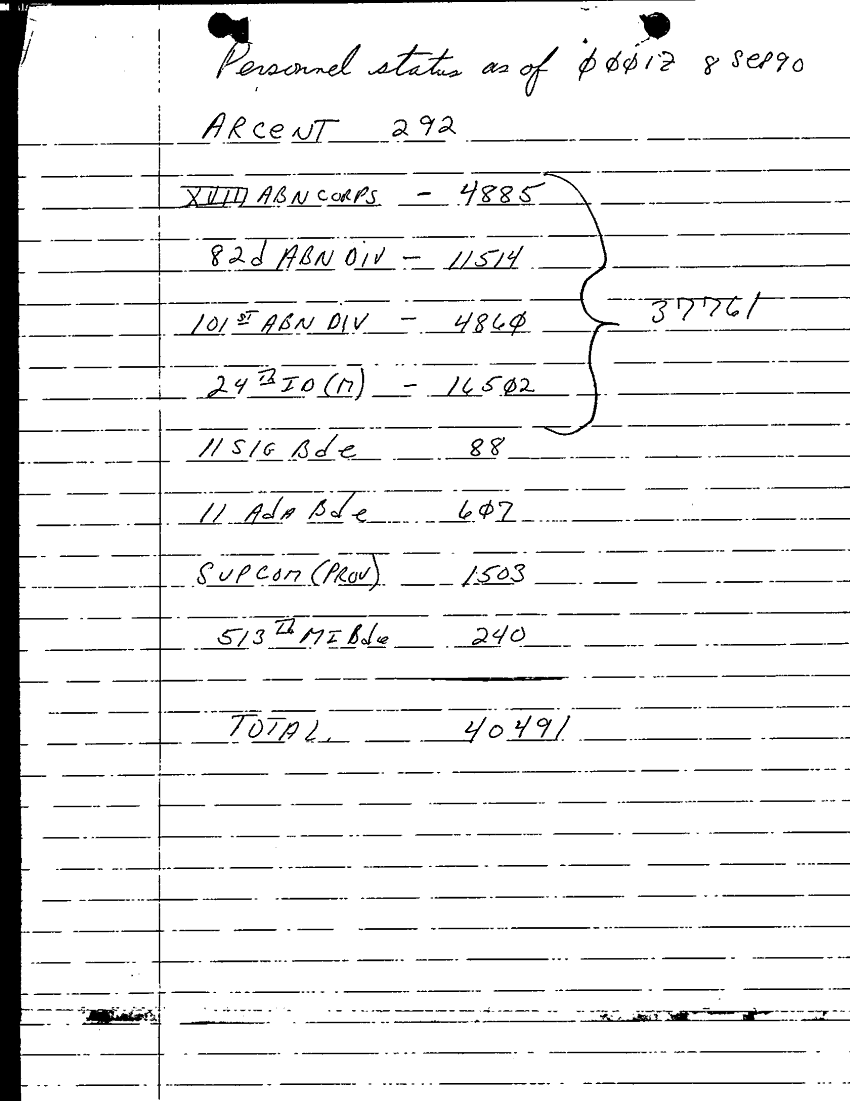 Personnel status as of 0001Z 8 SEP90
ARCENT 292
XVIII ABN CORPS - 4885
82d ABN DIV - 11514
37761
101ST ABN DIV - 4860
24th ID (M) - 16502
11 SIG Bde 88
11 AdA Bde 607
SUPCOM (PROV) 1503
513th MI Bde 240
TOTAL 40491